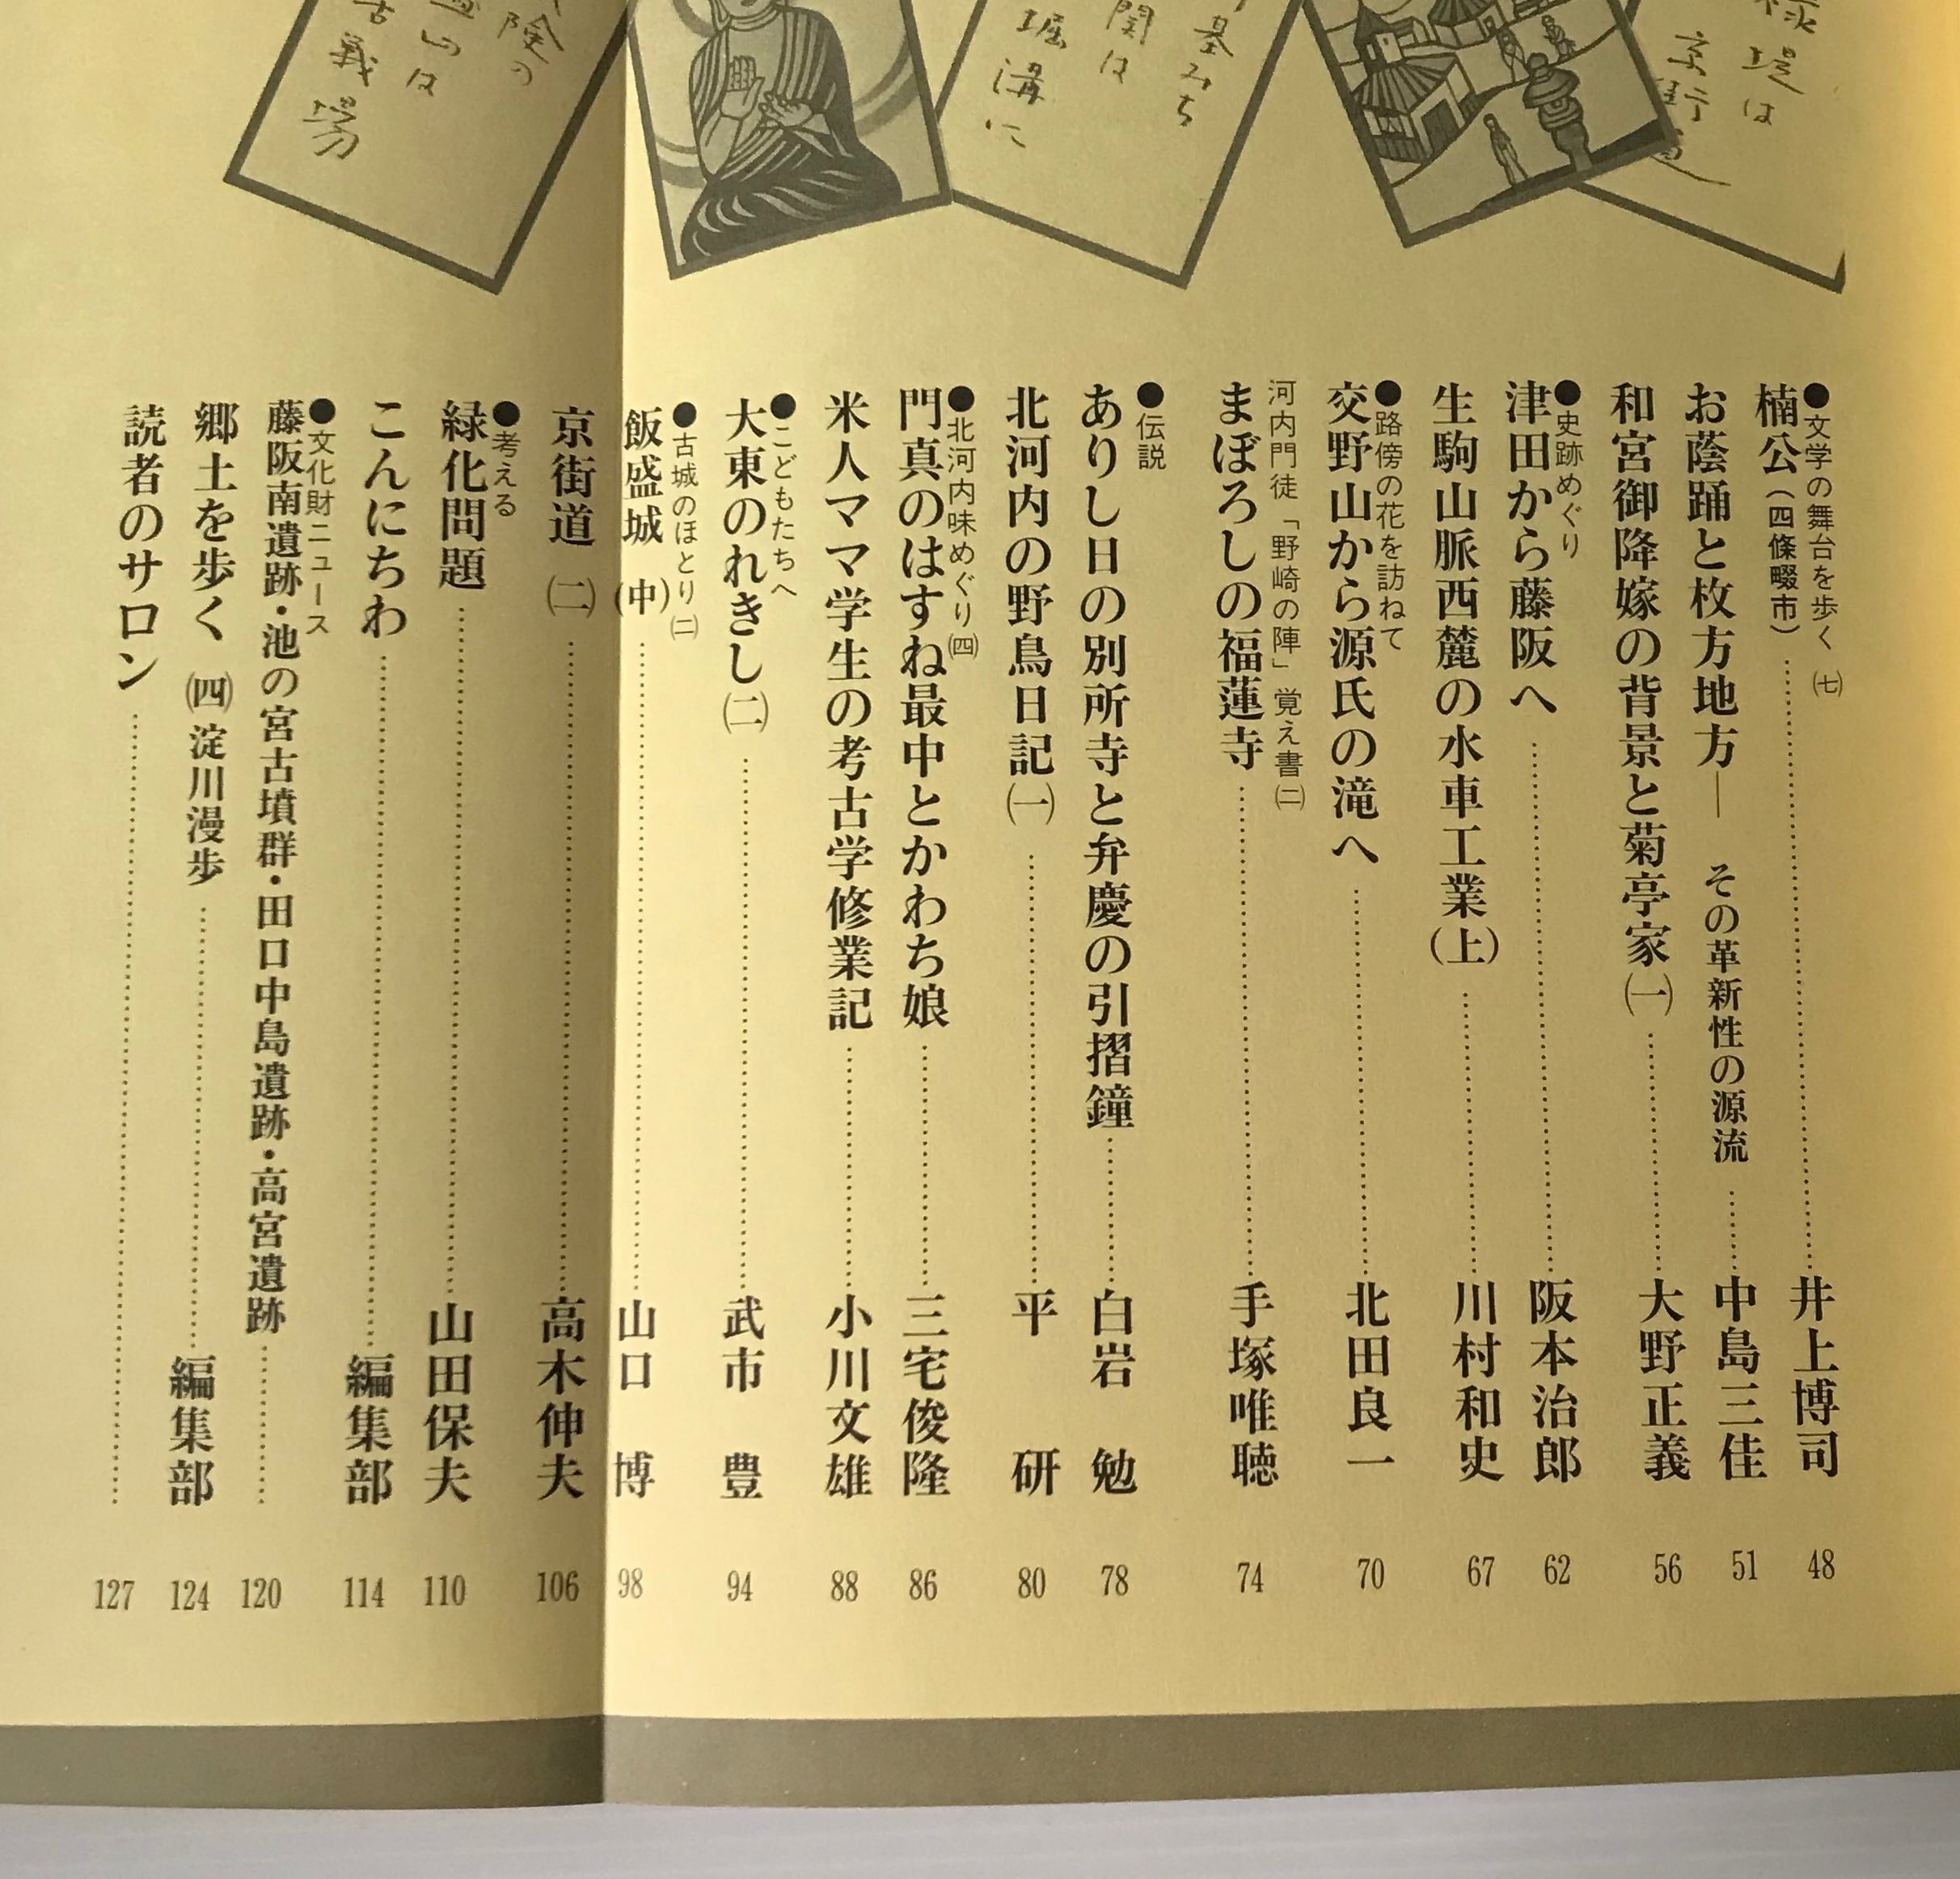 禄堤は
京街道
基みち
関は
堀溝に
険の
盛山は
古戦場
●文学の舞台を歩く㈦
楠公(四條畷市)………井上博司 48
お蔭踊と枚方地方― その革新性の源流………中島三佳 51
和宮御降嫁の背景と菊亭家㈠………大野正義 56
●史跡めぐり
津田から藤阪へ………阪本治郎 62
生駒山脈西麓の水車工業(上)………川村和史 67
●路傍の花を訪ねて
交野山から源氏の滝へ………北田良一 70
河内門徒「野崎の陣」覚え書㈡
まぼろしの福蓮寺………手塚唯聴 74
●伝説
ありし日の別所寺と弁慶の引摺鐘………白岩 勉 78
北河内の野鳥日記㈠………平 研 80
●北河内味めぐり㈣
門真のはすね最中とかわち娘………三宅俊隆 86
米人ママ学生の考古学修業記………小川文雄 88
●こどもたちへ
大東のれきし㈡………武市 豊 94
●古城のほとり㈡
飯盛城(中)………山口 博 98
京街道㈡………高木伸夫 106
●考える
緑化問題………山田保夫 110
こんにちわ………編集部 114
●文化財ニュース
藤阪南遺跡・池の宮古墳群・田口中島遺跡・高宮遺跡………120
郷土を歩く㈣ 淀川漫歩………編集部 124
読者のサロン………127